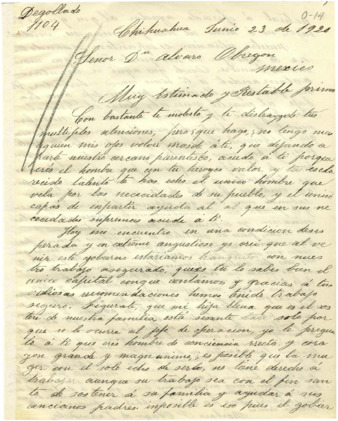 Degollado
1104
0-14
Chihuahua Junio 23 de 1920
Señor Dn Alvaro Obregon
Mexico
Muy Estimado y Restable primo
Con bastante te molesto, y te distraigo tus
multiples atenciones, pero que hago, no tengo
quien mis ojos volver mas de á ti, que dejando a
parte nuestro cercano parentesco, acudo á ti porque
eres el hombre que por tu heroyco valor, y tu escla
recido talento te has echo el unico hombre que
vela por las necesidades de su pueblo, y el unico
capas de impartir ayuda al que en sus ne
cesidades supremas acude á ti.
Hoy me encuentro en una condicion deses
perada y en extremo angustiosa yo creí que al ve
nir este gobierno estariamos tranquilos con nues
tro trabajo asegurado, que es tu lo sabes bien el
unico capital conque contamos y gracias á tus
valiosas recomendaciones hemos tenido trabajo
seguro. Figurate que mi hija Elena que es el sos
ten de nuestra familia, esta cesante solo por
que se le ocurre al jefe de operacion, yo te pregun
to á ti que eres hombre de conciencia recta y cora
zon grande y magnanimo, es posible que la mu
ger con el solo echo de serlo, no tiene derecho á
trabajar aunque su trabajo sea con el fin san
to de sostener á su familia y ayudar á sus
ancianos padres imposible es en pues el gobier